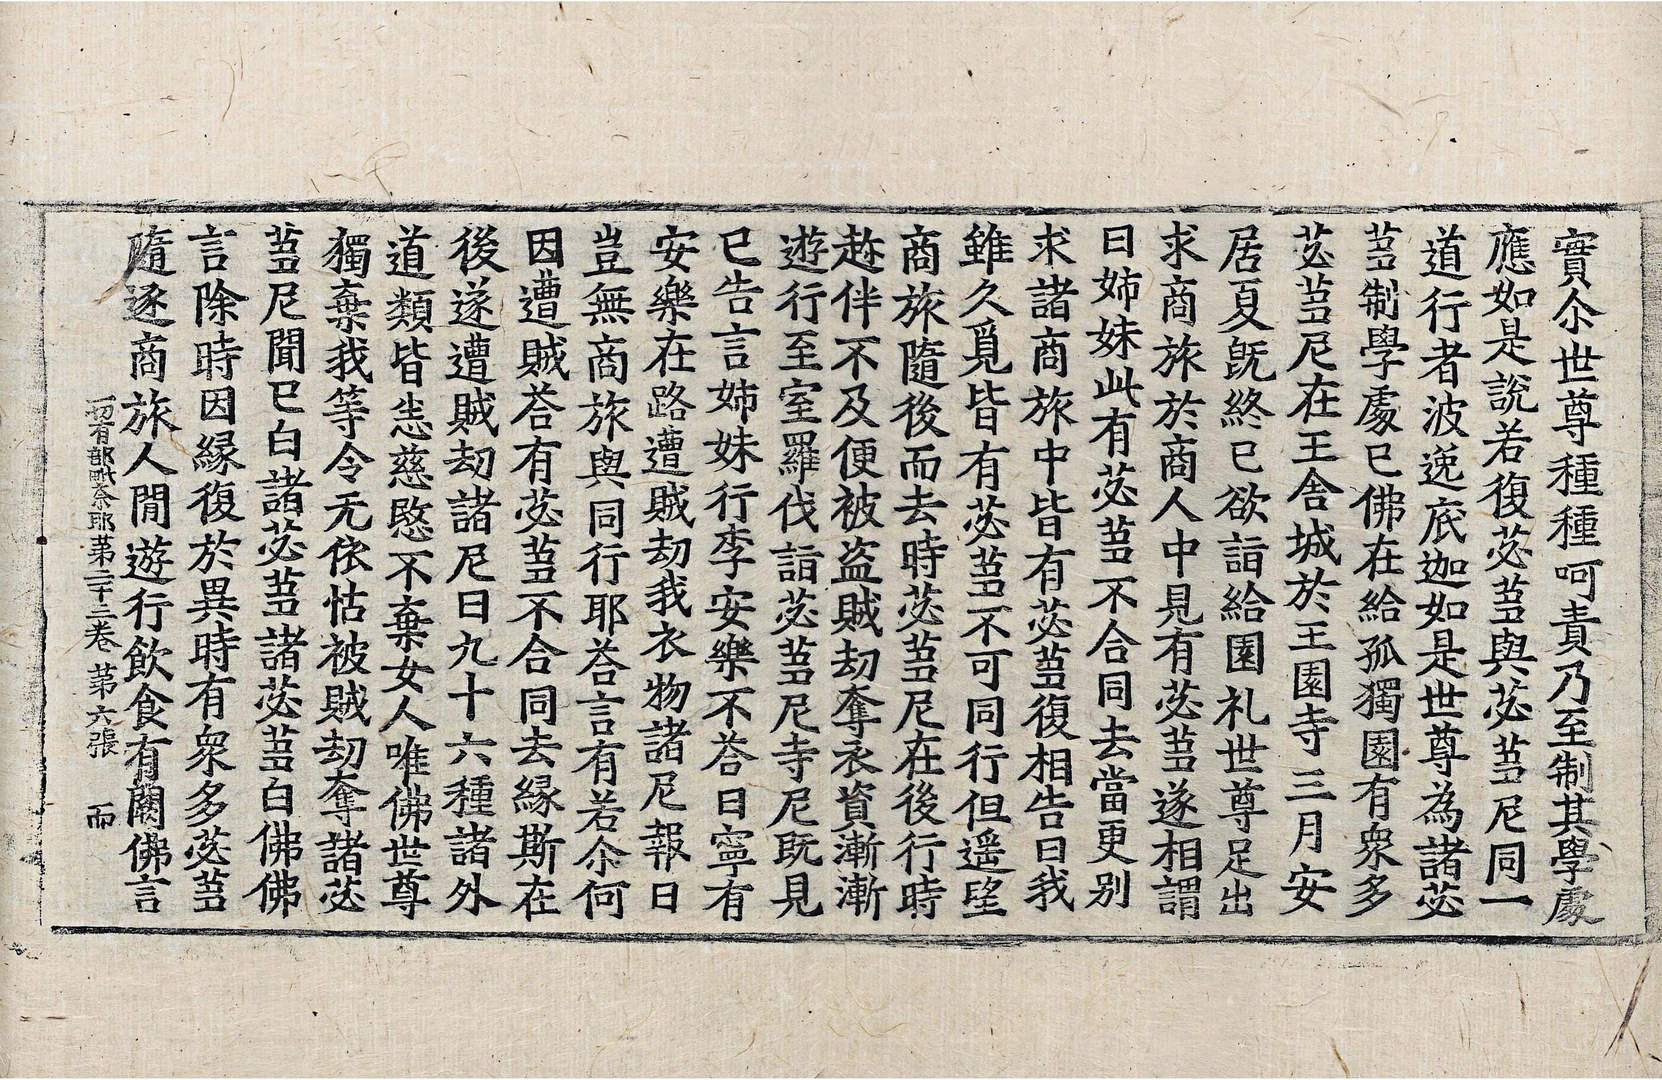 實尒世尊種種呵責乃至制其學處
應如是說若復苾蒭與苾蒭尼同一
道行者波逸底迦如是世尊為諸苾
蒭制學處已佛在給孤獨園有衆多
苾蒭尼在王舍城於王園寺三月安
居夏旣終已欲詣給園礼世尊足出
求商旅於商人中見有苾蒭遂相謂
曰姉妹此有苾蒭不合同去當更別
求諸商旅中皆有苾蒭復相告曰我
雖久覓皆有苾蒭不可同行但遥望
商旅隨後而去時苾蒭尼在後行時
趂伴不及便被盗賊劫奪衣資漸漸
遊行至室羅伐詣苾蒭尼寺尼旣見
已告言姉妹行李安樂不荅曰寧有
安樂在路遭賊劫我衣物諸尼報曰
豈無商旅與同行耶荅言有若尒何
因遭賊荅有苾蒭不合同去緣斯在
後遂遭賊劫諸尼曰九十六種諸外
道類皆恚慈愍不棄女人唯佛世尊
獨棄我等令无依怙被賊劫奪諸苾
蒭尼聞已白諸苾蒭諸苾蒭白佛佛
言除時因緣復於異時有衆多苾蒭
隨逐商旅人間遊行飲食有闕佛言
一切有部毗奈耶第三十二卷 第六張 而